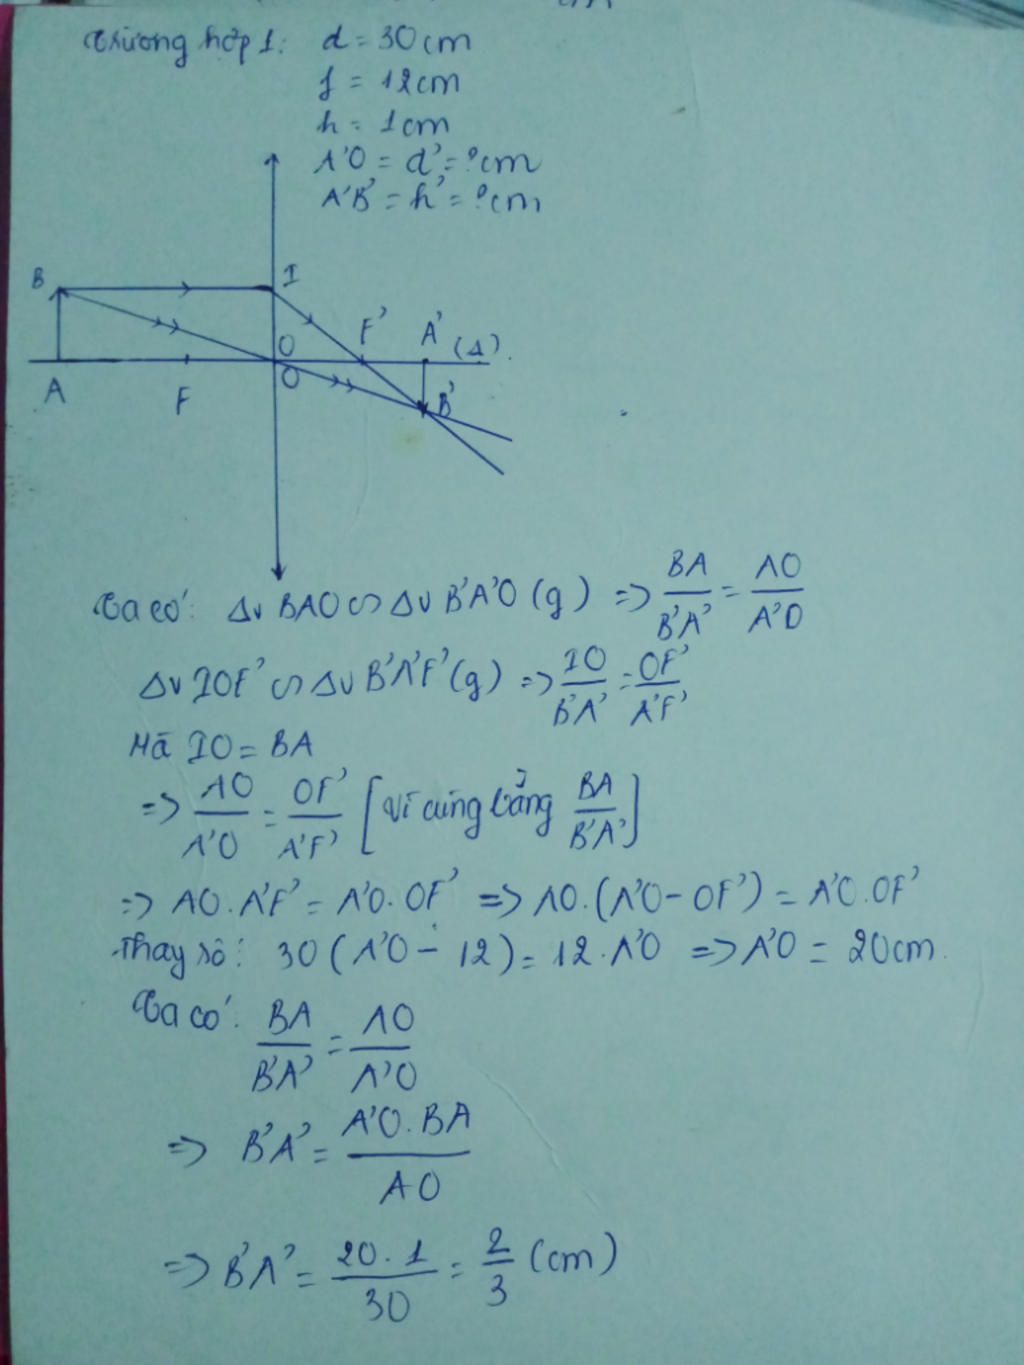 Trường hợp 1: d = 30cm
f = 12cm
h = 1cm
A'O = d' = ?cm
A'B' = h' = ?cm
B I
O F' A' (Δ).
A F O B'
Ta có: Δv BAO ∽ Δv B'A'O (g) => BA/B'A' = AO/A'O
Δv IOF' ∽ Δv B'A'F' (g) => IO/B'A' = OF'/A'F'
Mà IO = BA
=> AO/A'O = OF'/A'F' [Vì cùng bằng BA/B'A']
=> AO.A'F' = A'O.OF' => AO.(A'O - OF') = A'O.OF'
Thay số: 30(A'O - 12) = 12.A'O => A'O = 20cm.
Ta có: BA/B'A' = AO/A'O
=> B'A' = A'O.BA/AO
=> B'A' = 20.1/30 = 2/3 (cm)